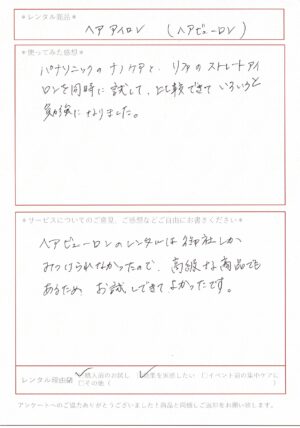 ＊レンタル商品＊
ヘアアイロン （ヘアビューロン）
＊使ってみた感想＊
パナソニックのナノケアと、リファのストレートアイ
ロンを同時に試して、比較できていろいろと
勉強になりました。
＊サービスについてのご意見、ご感想などご自由にお書きください＊
ヘアビューロンのレンタルは御社しか
みつけられなかったので、高級な商品でも
あるため お試しできてよかったです。
レンタル理由
✓購入前のお試し ✓効果を実感したい □イベント前の集中ケアに
□その他（ ）
アンケートへのご協力ありがとうございました！商品と同梱しご返却をお願い致します。